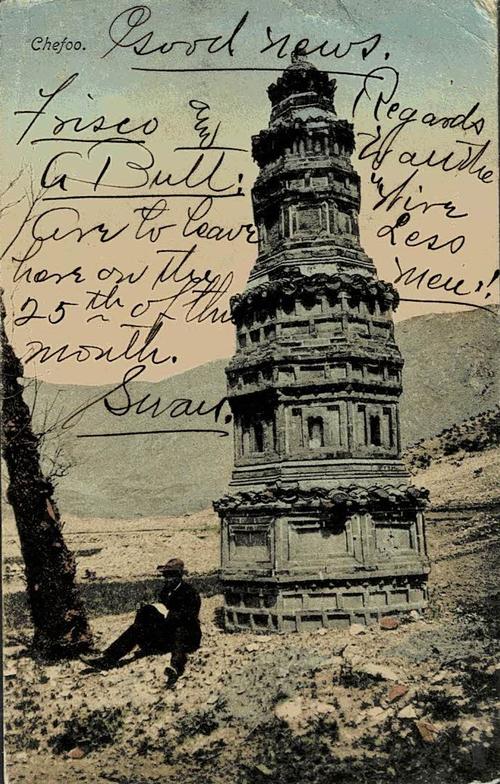 Chefoo.
Good news.
Frisco and
A Bull:
Are to leave
here on the
25th of this
month.
Swan.
Regards
to all the
five
Less
men!